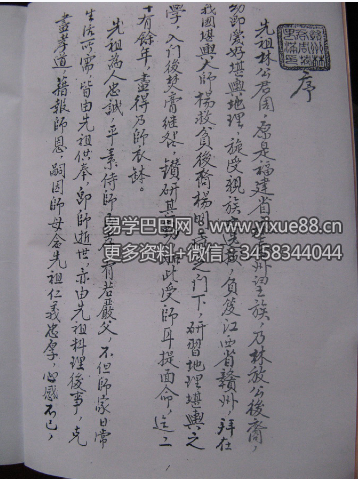 序
先祖林公君國，原是福建省
州望族，乃林放公後裔，
幼即愛好堪輿地理，旋受親族
負笈江西省贛州，拜在
我國堪輿大師楊救負後裔楊
之門下，研習地理堪輿之
學，入門後焚膏繼咎，鑽研其
此受師耳提面命，迄二
十有餘年，盡得乃師衣缽。
先祖為人忠誠，平素侍師
有若嚴父，不但師家日常
生活所需，皆由先祖供奉，即師逝世，亦由先祖料理後事，克
盡孝道，藉報師恩，嗣因師母念先祖仁義忠厚，心感不已，
易学巴巴网：www.yixue88.cn
更多资料+微信：3458344044